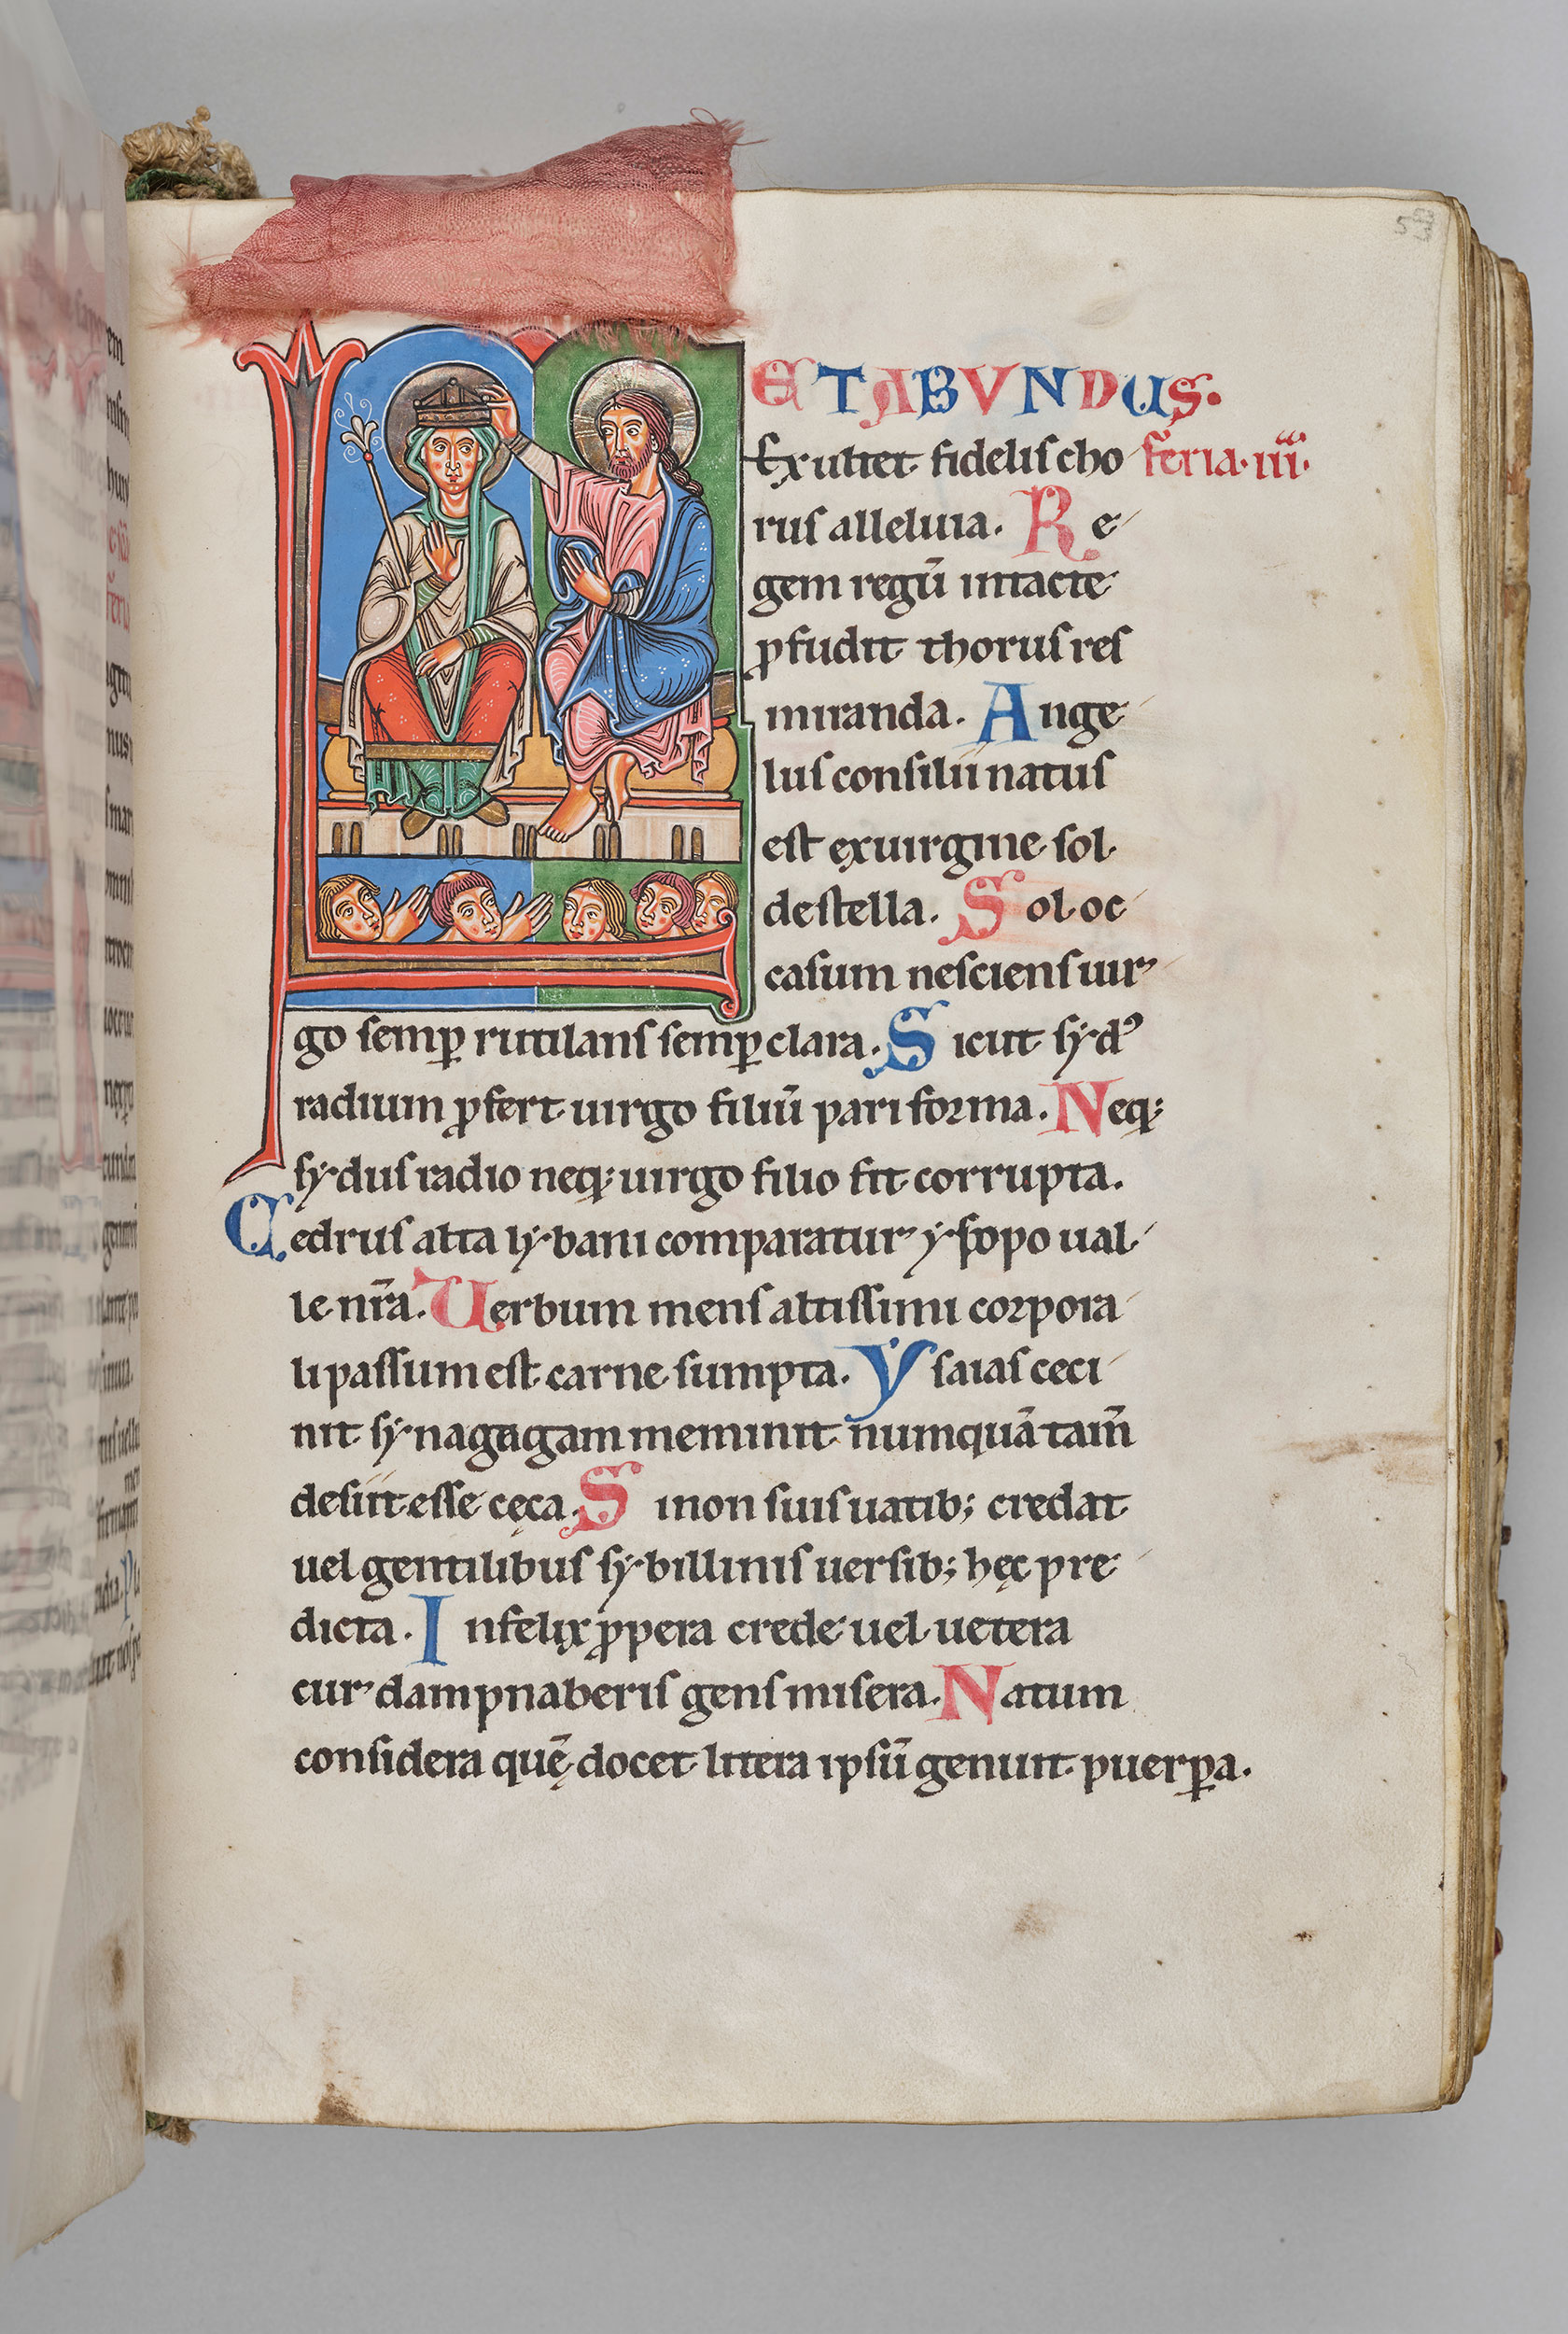 53
LETABVNDUS.
Exultet fidelis cho feria·iiii·
rus alleluia. Re
gem regū intacte
ꝓfudit thorus res
miranda. Ange
lus consilii natus
est ex uirgine sol
de stella. Sol oc
casum nesciens uir
go semꝑ rutilans semꝑ clara. Sicut sẏdꝰ
radium ꝓfert uirgo filiū pari forma. Neqꝫ
sẏdus radio neqꝫ uirgo filio fit corrupta.
Cedrus alta lẏbani comparatur ẏsopo ual
le nr̄a. Uerbum mens altissimi corpora
li passum est carne sumpta. Ysaias ceci
nit sẏnagagam meminit numquā tam̄
desiit esse cęca. Si non suis uatibꝫ credat
uel gentilibus sẏbillinis uersibꝫ hęc pre
dicta. Infelix ꝓpera crede uel uetera
cur dampnaberis gens misera. Natum
considera quę̄ docet littera ipsū genuit puerꝑa.